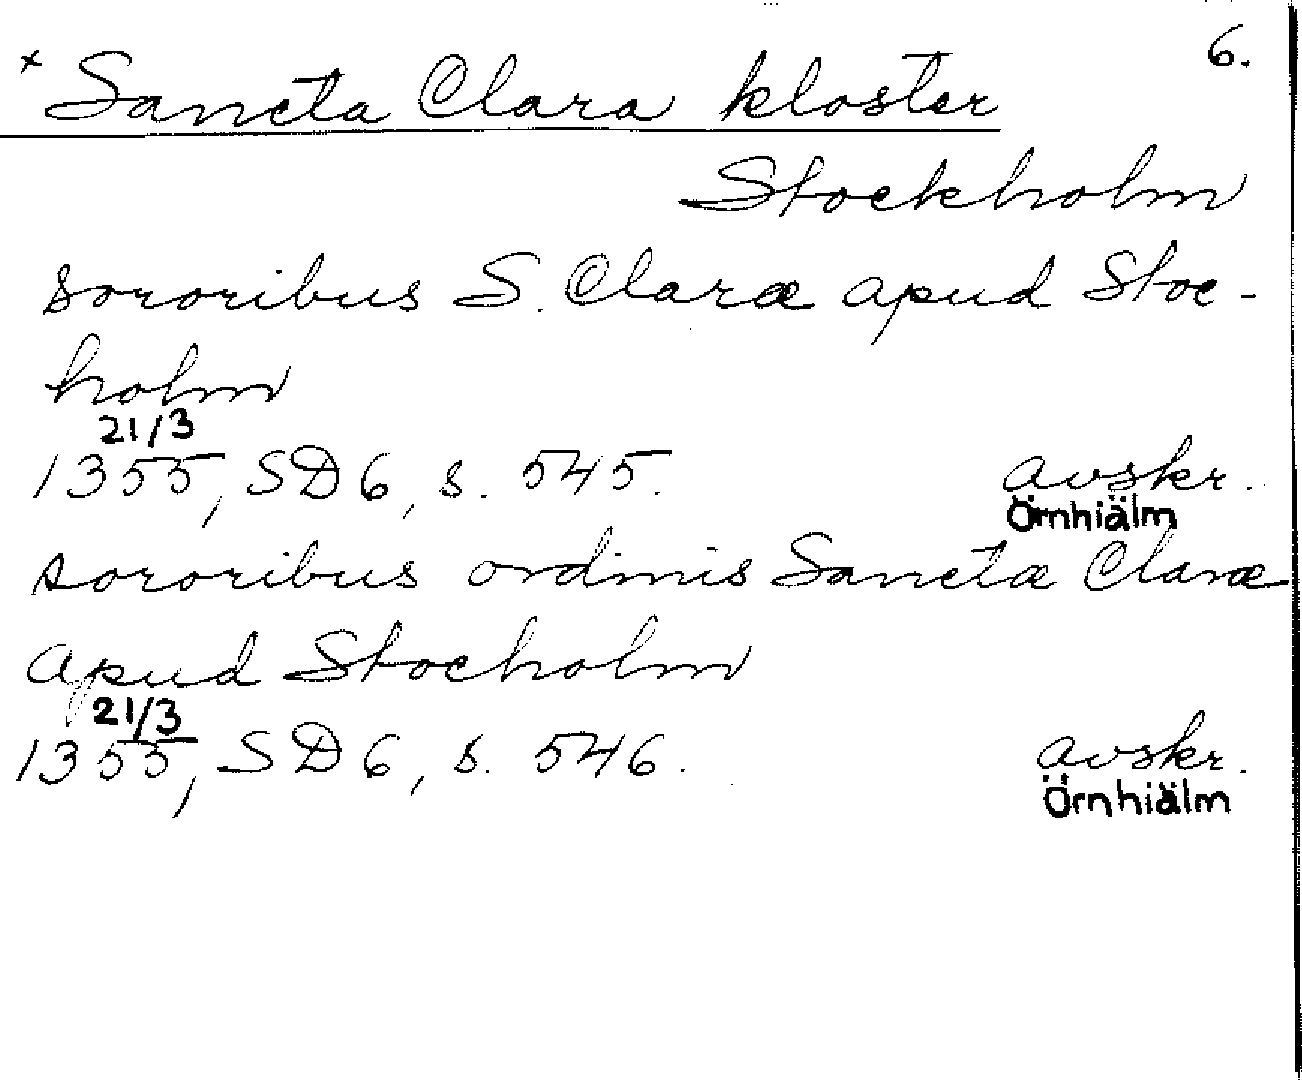 6.
× Sancta Clara kloster
Stockholm
sororibus S. Claræ apud Stoc-
holm
21/3
1355, SD 6, s. 545. avskr.
Örnhiälm
sororibus ordinis Sanctæ Claræ
apud Stocholm
21/3
1355, SD 6, s. 546. avskr.
Örnhiälm